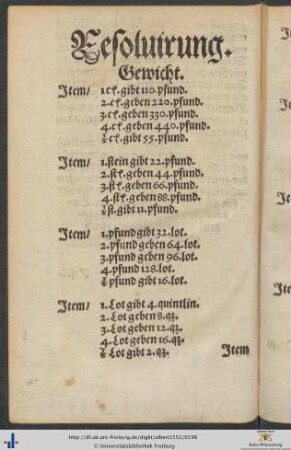 Resoluirung.
Gewicht.
Item/ 1 ct. gibt 110. pfund.
2. ct. geben 220. pfund.
3. ct. geben 330. pfund.
4. ct. geben 440. pfund.
½ ct. gibt 55. pfund.
Item/ 1. stein gibt 22. pfund.
2. stē. geben 44. pfund.
3. stē. geben 66. pfund.
4. stē. geben 88. pfund.
½ st. gibt 11. pfund.
Item/ 1. pfund gibt 32. lot.
2. pfund geben 64. lot.
3. pfund geben 96. lot.
4. pfund 128. lot.
½ pfund gibt 16. lot.
Item/ 1. Lot gibt 4. quintlin.
2. Lot geben 8. qz.
3. Lot geben 12. qz.
4. Lot geben 16. qz.
½ Lot gibt 2. qz. Item
http://dl.ub.uni-freiburg.de/diglit/albert1552/0198
© Universitätsbibliothek Freiburg